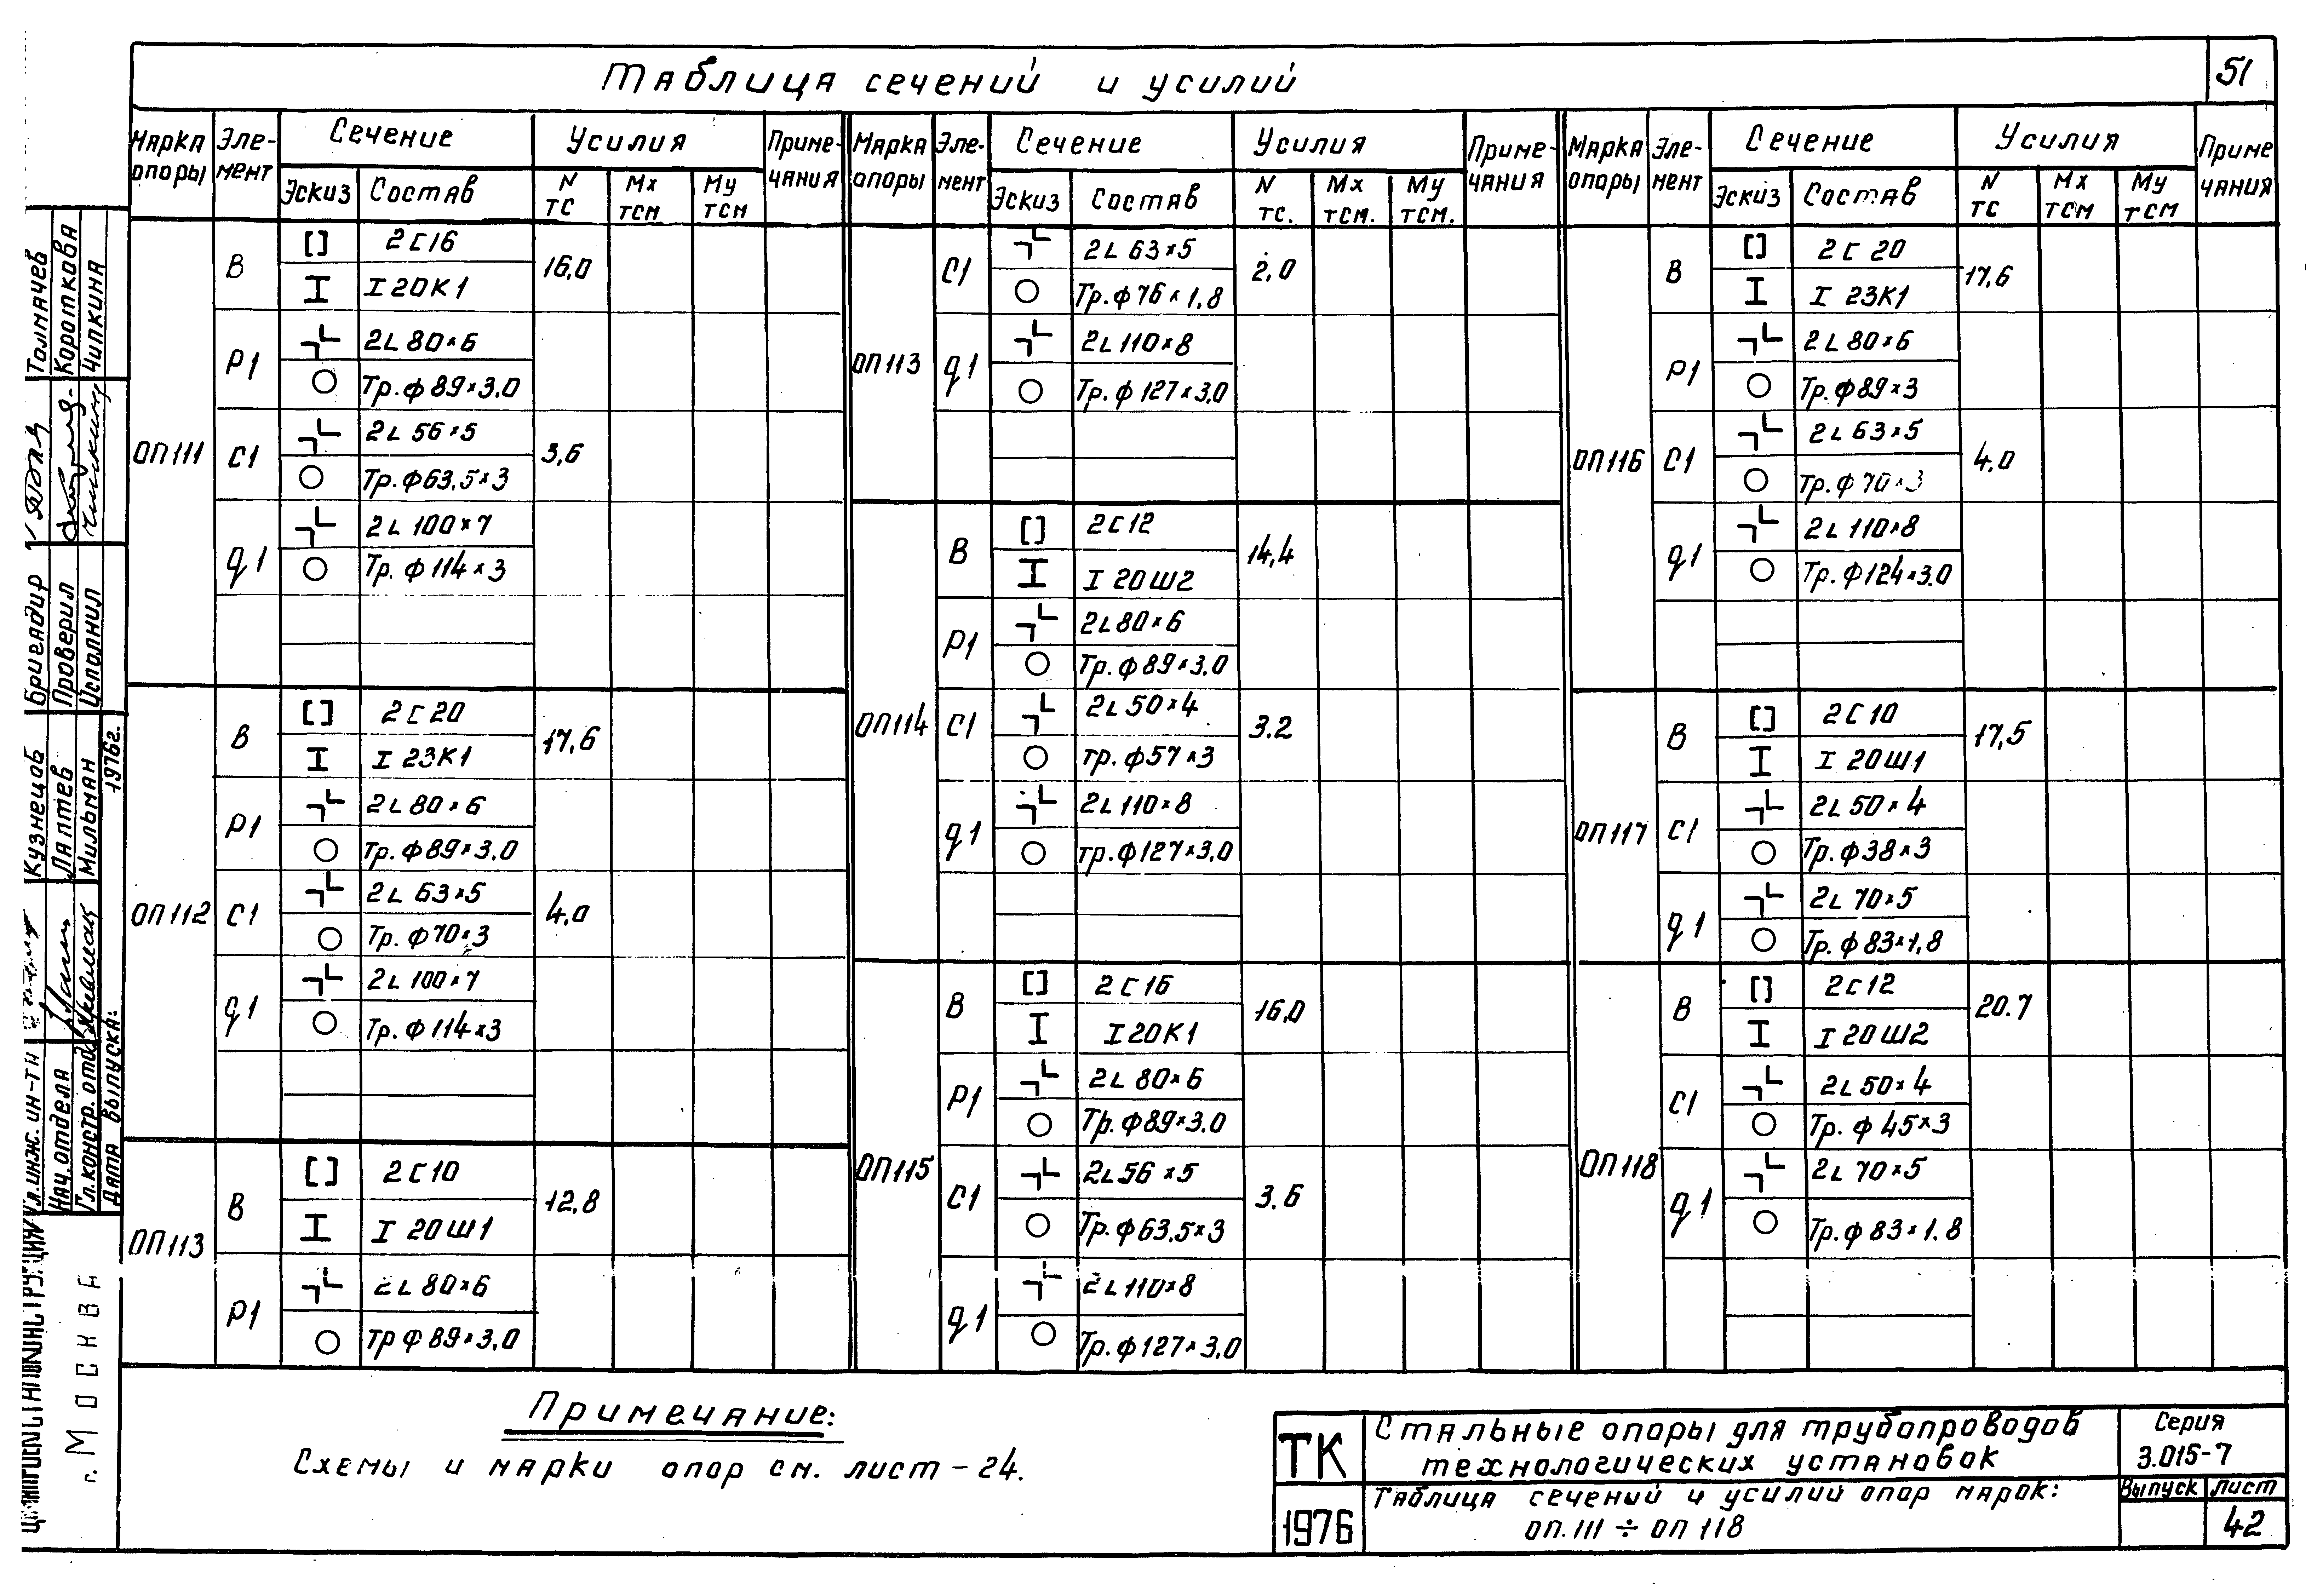 Таблица сечений и усилий
51
Марка опоры Элемент Сечение Усилия Примечания
Эскиз Состав N тс Мх тсм Му тсм
ОП111
В
2С16
I 20К1
16,0
Р1
2L 80×6
Тр. ф 89×3,0
С1
2L 56×5
Тр. ф63,5×3
3,6
q1
2L 100×7
Тр. ф 114×3
ОП112
В
2С20
I 23К1
17,6
Р1
2L 80×6
Тр. ф89×3,0
С1
2L 63×5
Тр. ф70×3
4,0
q1
2L 100×7
Тр. ф 114×3
ОП113
В
2С10
I 20Ш1
12,8
Р1
2L 80×6
Тр ф 89×3,0
Марка опоры Элемент Сечение Усилия Примечания
Эскиз Состав N тс. Мх тсм. Му тсм.
ОП113
С1
2L 63×5
Тр. ф76×1,8
2,0
q1
2L 110×8
Тр. ф 127×3,0
ОП114
В
2С12
I 20Ш2
14,4
Р1
2L 80×6
Тр. ф89×3,0
С1
2L 50×4
Тр. ф57×3
3.2
q1
2L 110×8
Тр. ф127×3,0
ОП115
В
2С16
I 20К1
16,0
Р1
2L 80×6
Тр. ф89×3.0
С1
2L 56×5
Тр. ф63,5×3
3.6
q1
2L 110×8
Тр. ф127×3,0
Марка опоры Элемент Сечение Усилия Примечания
Эскиз Состав N тс Мх тсм Му тсм
ОП116
В
2С 20
I 23К1
17,6
Р1
2L 80×6
Тр. ф89×3
С1
2L 63×5
Тр. ф 70×3
4.0
q1
2L 110×8
Тр. ф124×3.0
ОП117
В
2С10
I 20Ш1
17,5
С1
2L 50×4
Тр. ф38×3
q1
2L 70×5
Тр. ф 83×1,8
ОП118
В
2С12
I 20Ш2
20.7
С1
2L 50×4
Тр. ф 45×3
q1
2L 70×5
Тр. ф 83×1.8
Примечание:
Схемы и марки опор см. лист-24.
ТК
1976
Стальные опоры для трубопроводов
технологических установок
Таблица сечений и усилий опор марок:
ОП.111 ÷ ОП 118
Серия
3.015-7
Выпуск
Лист
42
Толмачев
Короткова
Чипкина
Бригадир
Проверил
Исполнил
Кузнецов
Лаптев
Мильман
1976г.
Гл.инж. ин-та
Нач.отдела
Гл.констр. отд.
Дата выпуска:
г. Москва